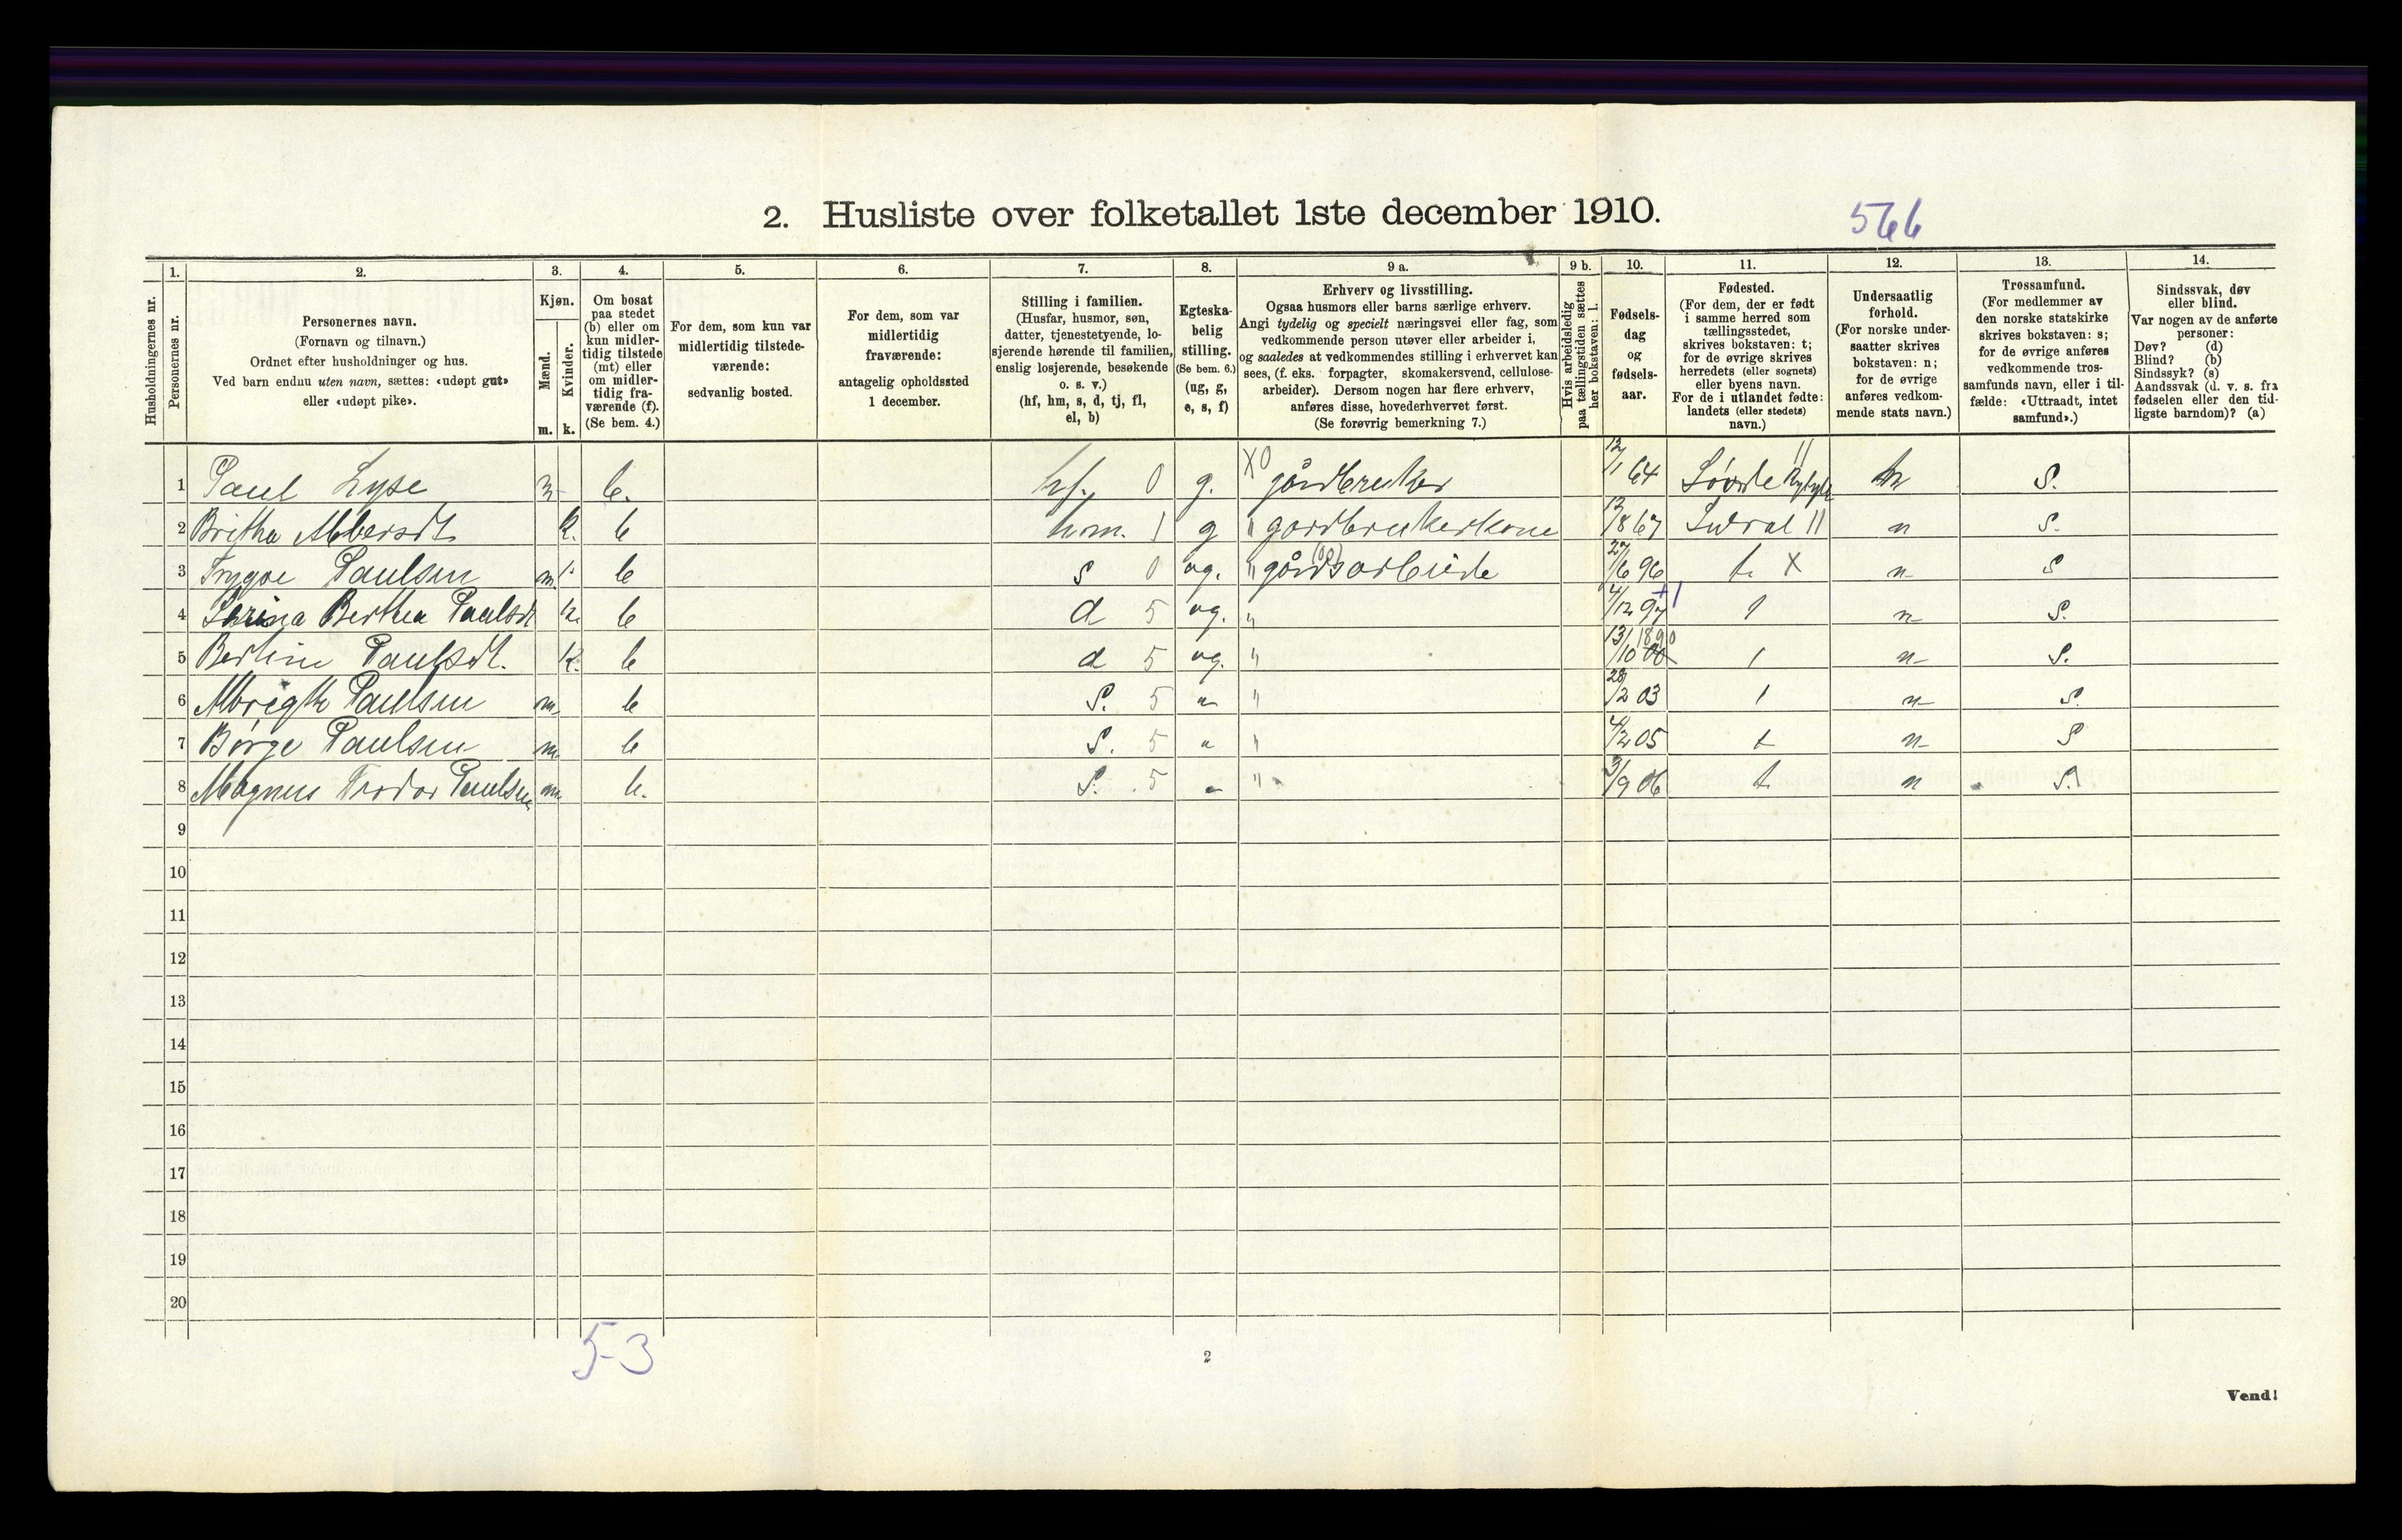 2. Husliste over folketallet 1ste december 1910.
566
Husholdningernes nr.
1.
Personernes nr.
2.
Personernes navn.
(Fornavn og tilnavn.)
Ordnet efter husholdninger og hus.
Ved barn endnu uten navn, sættes: «udøpt gut»
eller «udøpt pike».
3.
Kjøn.
Mænd.
Kvinder.
m. k.
4.
Om bosat
paa stedet
(b) eller om
kun midler-
tidig tilstede
(mt) eller
om midler-
tidig fra-
værende (f).
(Se bem. 4.)
5.
For dem, som kun var
midlertidig tilstede-
værende:
sedvanlig bosted.
6.
For dem, som var
midlertidig
fraværende:
antagelig opholdssted
1 december.
7.
Stilling i familien.
(Husfar, husmor, søn,
datter, tjenestetyende, lo-
sjerende hørende til familien,
enslig losjerende, besøkende
o. s. v.)
(hf, hm, s, d, tj, fl,
el, b)
8.
Egteska-
belig
stilling.
(Se bem. 6.)
(ug, g,
e, s, f)
9 a.
Erhverv og livsstilling.
Ogsaa husmors eller barns særlige erhverv.
Angi tydelig og specielt næringsvei eller fag, som
vedkommende person utøver eller arbeider i,
og saaledes at vedkommendes stilling i erhvervet kan
sees, (f. eks. forpagter, skomakersvend, cellulose-
arbeider). Dersom nogen har flere erhverv,
anføres disse, hovederhvervet først.
(Se forøvrig bemerkning 7.)
9 b.
Hvis arbeidsledig
paa tællingstiden sættes
her bokstaven: l.
10.
Fødsels-
dag
og
fødsels-
aar.
11.
Fødested.
(For dem, der er født
i samme herred som
tællingsstedet,
skrives bokstaven: t;
for de øvrige skrives
herredets (eller sognets)
eller byens navn.
For de i utlandet fødte:
landets (eller stedets)
navn.)
12.
Undersaatlig
forhold.
(For norske under-
saatter skrives
bokstaven: n;
for de øvrige
anføres vedkom-
mende stats navn.)
13.
Trossamfund.
(For medlemmer av
den norske statskirke
skrives bokstaven: s;
for de øvrige anføres
vedkommende tros-
samfunds navn, eller i til-
fælde: «Uttraadt, intet
samfund».)
14.
Sindssvak, døv
eller blind.
Var nogen av de anførte
personer:
Døv? (d)
Blind? (b)
Sindssyk? (s)
Aandssvak (d. v. s. fra
fødselen eller den tid-
ligste barndom)? (a)
1 Paul Lyse m b. hf. 0 g. X0 gårdbruker 12/1 64 n S.
2 Britha k. b hm. 1 g " gardbrukerkone 13/8 67 Suldal || n S.
3 Trygve Paulsen m b s 0 ug. " gårdsarbeide 27/6 96 t. X n S
4 Bertha Paulsdt k b d 5 ug. " 4/12 97 n S.
5 Bertine Paulsdt. k. b d 5 ug. " 13/10 1890 n S.
6 Paulsen m b S. 5 " " 28/2 03 n S.
7 Børge Paulsen m b S. 5 " " 4/2 05 t n S
8 Magnus Paulsen m b. S. 5 " " 3/9 06 t. n S.
9
10
11
12
13
14
15
16
17
18
19
20
5-3
2
Vend!